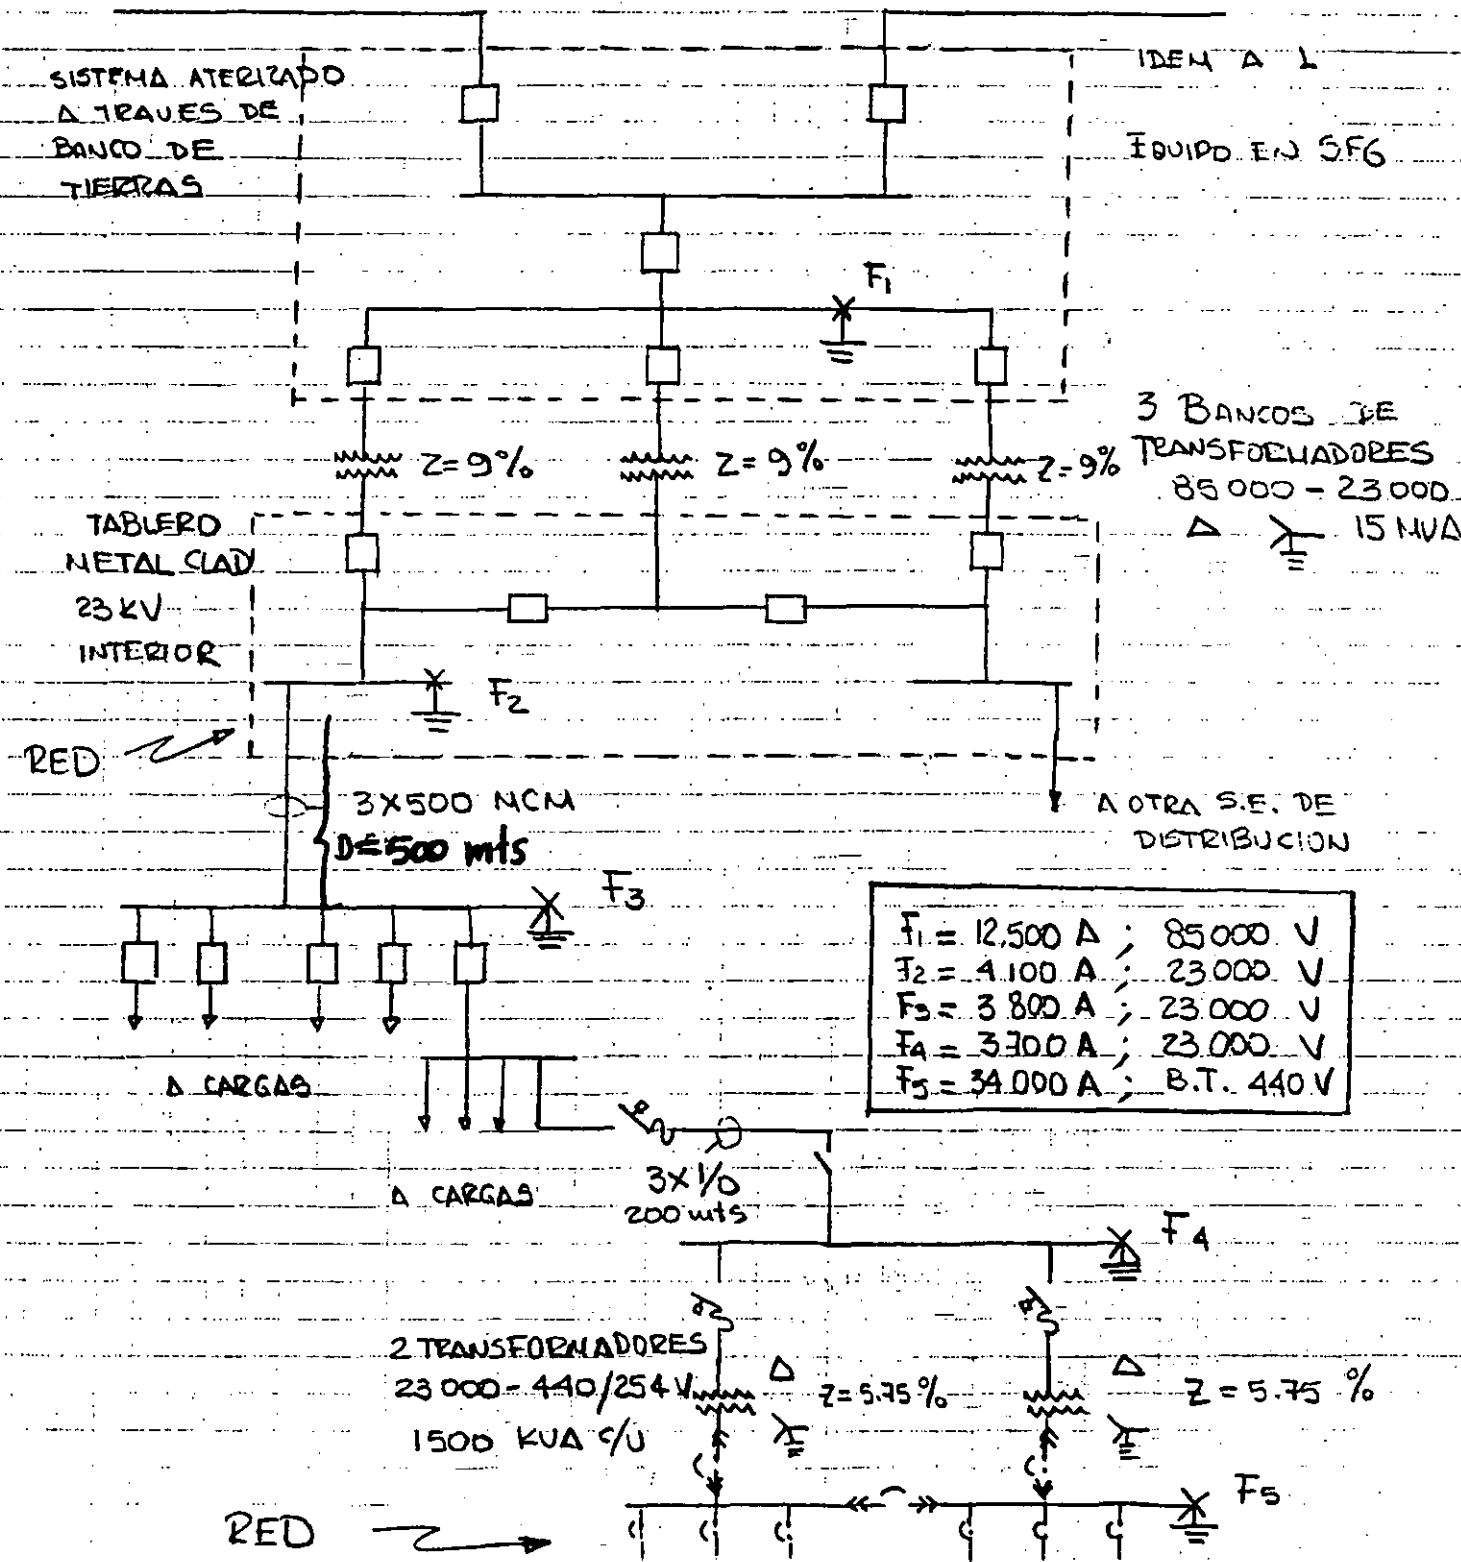 SISTEMA ATERIZADO
A TRAVES DE
BANCO DE
TIERRAS
IDEM A L
EQUIPO EN SF6
F1
Z=9%
Z=9%
Z=9%
3 BANCOS DE
TRANSFORMADORES
85000-23000
Δ 15 MVA
TABLERO
METAL CLAD
23 KV
INTERIOR
F2
RED
3X500 MCM
D=500 mts
A OTRA S.E. DE
DISTRIBUCION
F3
F1 = 12,500 A ; 85000 V
F2 = 4.100 A ; 23.000 V
F3 = 3 800 A ; 23.000 V
F4 = 3700 A ; 23.000 V
F5 = 34.000 A ; B.T. 440 V
A CARGAS
A CARGAS
3X1/0
200 mts
F4
2 TRANSFORMADORES
23 000-440/254 V
1500 KVA C/U
Δ
Z=5.75%
Δ
Z=5.75 %
F5
RED